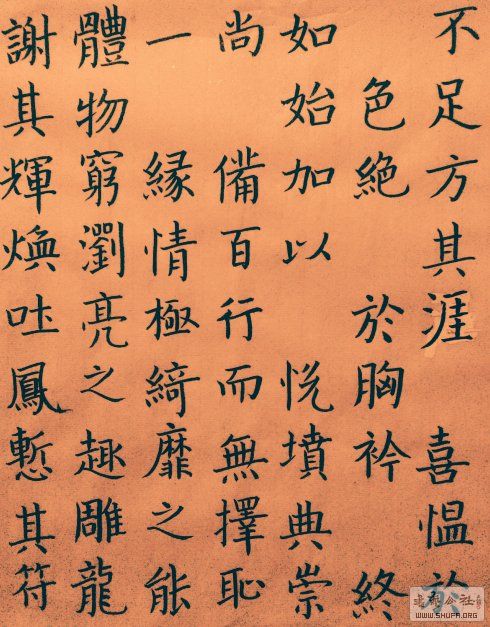 不足方其涯 喜愠於
色絶 於胸衿 終
如始加以 悦墳典崇
尚 備百行而無擇恥
一 縁情極綺靡之能
體物窮瀏亮之趣雕龍
謝其輝煥吐鳳慙其符
WWW.SHUFA.ORG